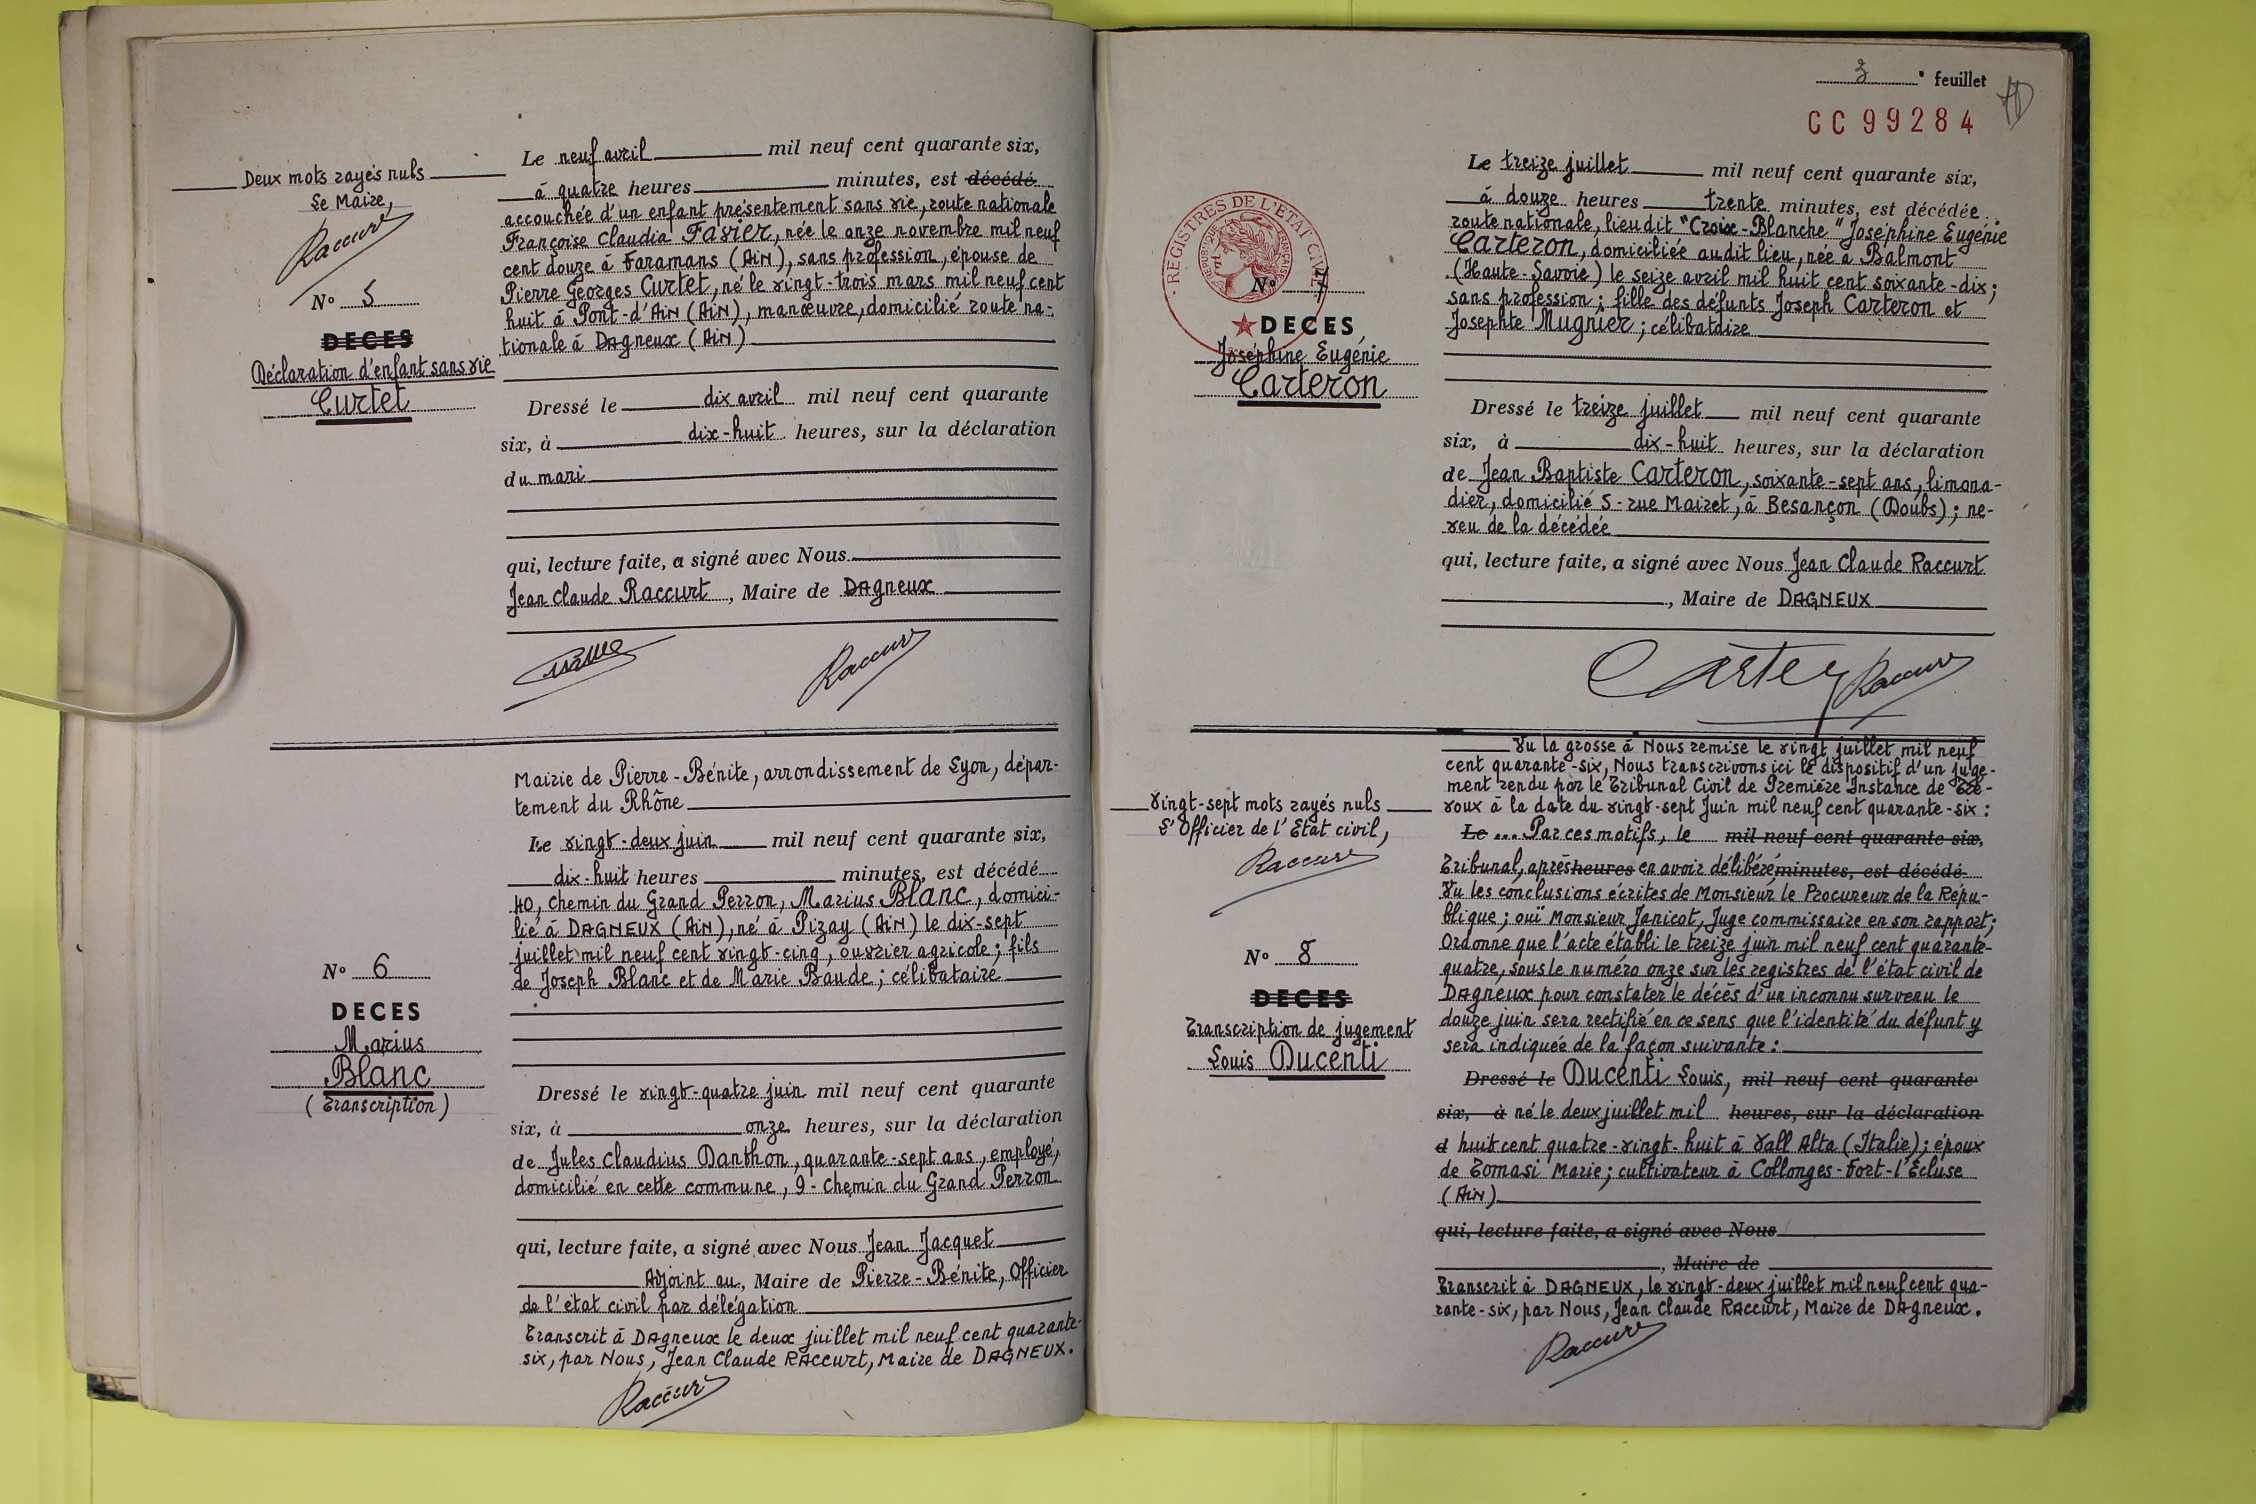 Deux mots rayés nuls
Le Maire,
Raccurt
N° 5
DECES
Déclaration d'enfant sans vie
Curtet
Le neuf avril mil neuf cent quarante six,
à quatre heures minutes, est décédé
accouchée d'un enfant présentement sans vie, route nationale
Françoise Claudia Favier, née le onze novembre mil neuf
cent douze à Faramans (Ain), sans profession, épouse de
Pierre Georges Curtet, né le vingt-trois mars mil neuf cent
huit à Pont-d'Ain (Ain), manœuvre, domicilié route na-
tionale à Dagneux (Ain)
Dressé le dix avril mil neuf cent quarante
six, à dix-huit heures, sur la déclaration
du mari
qui, lecture faite, a signé avec Nous
Jean Claude Raccurt, Maire de Dagneux
Raccurt
N° 6
DECES
Marius
Blanc
(Transcription)
Mairie de Pierre-Bénite, arrondissement de Lyon, dépar-
tement du Rhône
Le vingt-deux juin mil neuf cent quarante six,
dix-huit heures minutes, est décédé
40, chemin du Grand Perron, Marius Blanc, domici-
lié à DAGNEUX (Ain), né à Pizay (Ain) le dix-sept
juillet mil neuf cent vingt-cinq, ouvrier agricole; fils
de Joseph Blanc et de Marie Baude; célibataire
Dressé le vingt-quatre juin mil neuf cent quarante
six, à onze heures, sur la déclaration
de Jules Claudius Danthon, quarante-sept ans, employé,
domicilié en cette commune, 9-chemin du Grand Perron
qui, lecture faite, a signé avec Nous Jean Jacquet
Adjoint au, Maire de Pierre-Bénite, Officier
de l'état civil par délégation
Transcrit à Dagneux le deux juillet mil neuf cent quarante-
six, par Nous, Jean Claude RACCURT, Maire de DAGNEUX.
Raccurt
3e feuillet
CC 99284
REGISTRES DE L'ETAT CIVIL
REPUBLIQUE FRANÇAISE
N° 7
DECES
Joséphine Eugénie
Carteron
Le treize juillet mil neuf cent quarante six,
à douze heures trente minutes, est décédée
route nationale, lieu dit "Croix-Blanche" Joséphine Eugénie
Carteron, domiciliée audit lieu, née à Balmont
(Haute-Savoie) le seize avril mil huit cent soixante-dix;
sans profession; fille des défunts Joseph Carteron et
Josephte Mugnier; célibataire
Dressé le treize juillet mil neuf cent quarante
six, à dix-huit heures, sur la déclaration
de Jean Baptiste Carteron, soixante-sept ans, limona-
dier, domicilié 5-rue Mairet, à Besançon (Doubs); ne-
veu de la décédée
qui, lecture faite, a signé avec Nous Jean Claude Raccurt
, Maire de DAGNEUX
Raccurt
Vingt-sept mots rayés nuls
L'Officier de l'Etat civil,
Raccurt
N° 8
DECES
Transcription de jugement
Louis Ducenti
Vu la grosse à Nous remise le vingt juillet mil neuf
cent quarante-six, Nous transcrivons ici le dispositif d'un juge-
ment rendu par le Tribunal Civil de Première Instance de Tré-
voux à la date du vingt-sept Juin mil neuf cent quarante-six:
Le ... Par ces motifs, le mil neuf cent quarante six,
Tribunal, après heures en avoir délibéré minutes, est décédé
Vu les conclusions écrites de Monsieur le Procureur de la Répu-
blique; ouï Monsieur Janicot, Juge commissaire en son rapport;
Ordonne que l'acte établi le treize juin mil neuf cent quarante-
quatre, sous le numéro onze sur les registres de l'état civil de
Dagneux pour constater le décès d'un inconnu survenu le
douze juin sera rectifié en ce sens que l'identité du défunt y
sera indiquée de la façon suivante:
Dressé le Ducenti Louis, mil neuf cent quarante
six, à né le deux juillet mil heures, sur la déclaration
d huit cent quatre-vingt-huit à Vall Alta (Italie); époux
de Tomasi Marie; cultivateur à Collonges-Fort-l'Ecluse
(Ain)
qui, lecture faite, a signé avec Nous
, Maire de
Transcrit à DAGNEUX, le vingt-deux juillet mil neuf cent qua-
rante-six, par Nous, Jean Claude RACCURT, Maire de Dagneux.
Raccurt